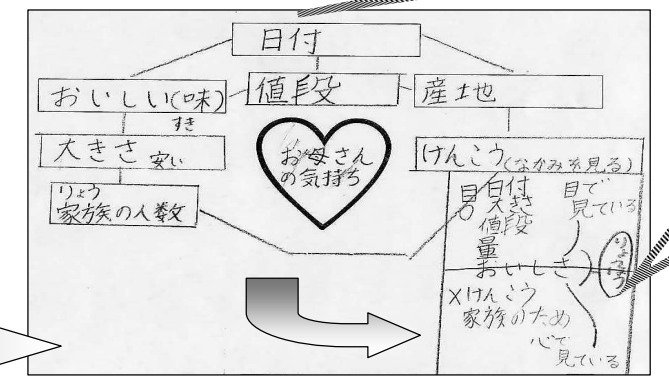 日付
おいしい(味)
値段
産地
すき
大きさ 安い
お母さん
の気持ち
けんこう(なかみを見る)
りょう
家族の人数
日付
大きさ
値段
量
おいしさ
目で
見ている
りょうほう
×けんこう
家族のため
心で
見ている